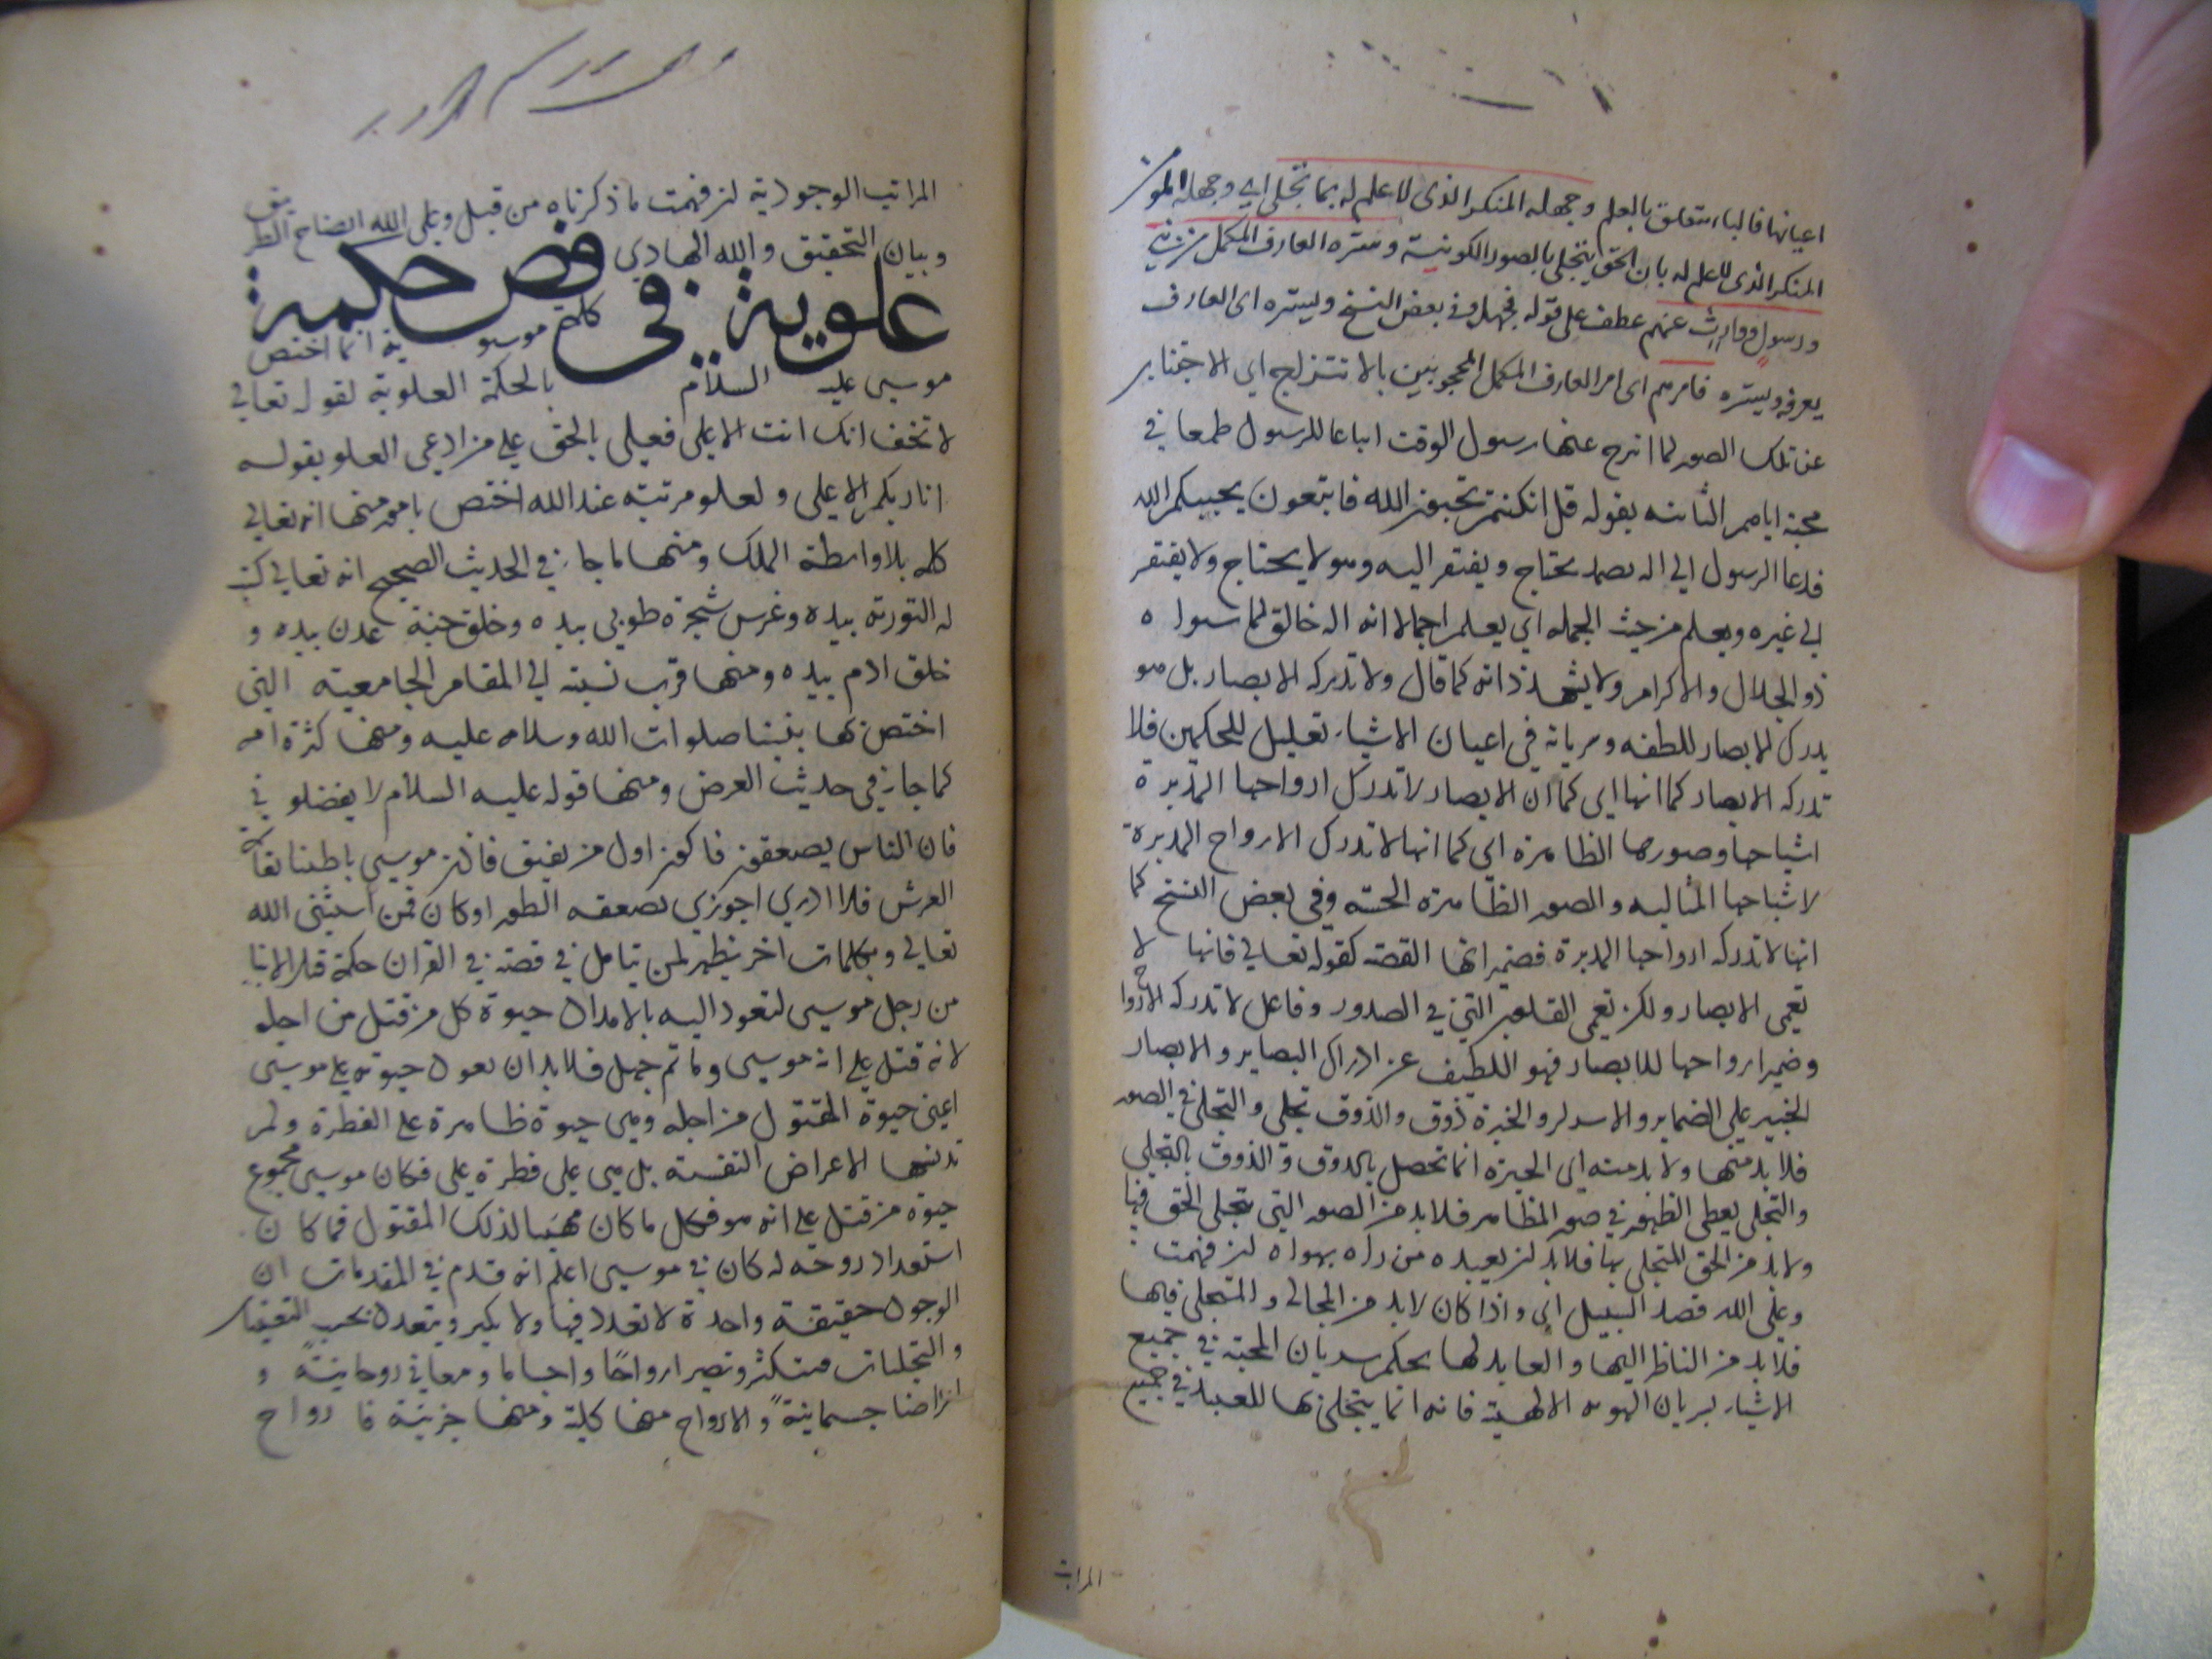 اعيانها فالباء متعلق بالعلم وجهله المنكر الذى لا علم له بما تجلى اى وجهله المؤمن
المنكر الذى لا علم له بان الحق يتجلى بالصور الكونية وستره العارف المكمل من نبى
ورسول ووارث عنهم عطف على قوله فجهل وفى بعض النسخ ويستره اى العارف
يعرفه ويستره فامرهم اى امر العارف المكمل المحجوبين بالانتزاح اى الاجتناب
عن تلك الصور لما انتزح عنها رسول الوقت اتباعا للرسول طمعا فى
محبة اياهم الثابتة بقوله قل ان كنتم تحبون الله فاتبعون يحببكم الله
فدعا الرسول الى اله يصمد يحتاج ويفتقر اليه وهو لا يحتاج ولا يفتقر
الى غيره ويعلم من حيث الجملة اى يعلم اجمالا انه اله خالق لما سواه
ذو الجلال والاكرام ولا يشهد ذاته كما قال ولا تدركه الابصار بل هو
يدرك الابصار للطفه وسريانه فى اعيان الاشياء تعليل للحكمين فلا
تدركه الابصار كما انها اى كما ان الابصار لا تدرك ارواحها المدبرة
اشباحها وصورها الظاهرة اى كما انها لا تدرك الارواح المدبرة
لاشباحها المثالية والصور الظاهرة الحسية وفى بعض النسخ كما
انها لا تدركه ارواحها المدبرة فضمير انها القصة كقوله تعالى فانها لا
تعمى الابصار ولكن تعمى القلوب التى فى الصدور وفاعل لا تدركه الارواح
وضمير ارواحها للابصار فهو اللطيف عن ادراك البصاير والابصار
الخبير على الضماير والاسرار والخبرة ذوق والذوق تجلى والتجلى فى الصور
فلا بد منها ولا بد منه اى الخبرة انما تحصل بالذوق والذوق بالتجلى
والتجلى يعطى الظهور فى صور المظاهر فلا بد من الصور التى يتجلى الحق فيها
ولا بد من الحق المتجلى بها فلا بد ان يعبده من راه بهواه ان فهمت
وعلى الله قصد السبيل اى واذا كان لا بد من المجالى والمتجلى فيها
فلا بد من الناظر اليها والعابد لها بحكم سريان المحبة فى جميع
الاشياء لسريان الهوية الالهية فانه انما يتجلى بها للعبد فى جميع
المراتب
المراتب الوجودية ان فهمت ما ذكرناه من قبل وعلى الله ايضاح الطريق
وبيان التحقيق والله الهادى
فص حكمة
علوية فى
كلمة موسوية انما اختص
موسى عليه السلام بالحكمة العلوية لقوله تعالى
لا تخف انك انت الاعلى فعلى بالحق على من ادعى العلو بقوله
انا ربكم الاعلى ولعلو مرتبته عند الله اختص بامور منها انه تعالى
كلمه بلا واسطة الملك ومنها ما جاء فى الحديث الصحيح انه تعالى كتب
له التورية بيده وغرس شجرة طوبى بيده وخلق جنة عدن بيده و
خلق ادم بيده ومنها قرب نسبته الى المقام الجامعية التى
اختص بها نبينا صلوات الله وسلامه عليه ومنها كثرة امته
كما جاء فى حديث العرض ومنها قوله عليه السلام لا تفضلونى
فان الناس يصعقون فاكون اول من يفيق فاذن موسى باطشا بقائمة
العرش فلا ادرى اجوزى بصعقه الطور او كان ممن استثنى الله
تعالى وبكلمات اخر يظهر لمن يتامل فى قصته فى القران حكمة قتل الابناء
من رجل موسى لتعود اليه بالامداد حيوة كل من قتل من اجله
لانه قتل على انه موسى وما ثم جهل فلا بد ان يعود حيوته على موسى
اعنى حيوة المقتول من اجله وهى حيوة ظاهرة على الفطرة ولم
تدنسها الاعراض النفسية بل هى على فطرة بلى فكان موسى مجموع
حيوة من قتل على انه هو فكل ما كان مهيئا لذلك المقتول فما كان
استعداد روحه له كان فى موسى اعلم انه قدم فى المقدمات ان
الوجود حقيقة واحدة لا تعدد فيها ولا يكثر ويتعدد بحسب التعينات
والتجليات فيتكثر وتصير ارواحًا واجساما ومعانى روحانيةً و
اعراضا جسمانيةً والارواح منها كلية ومنها جزئية فارواح